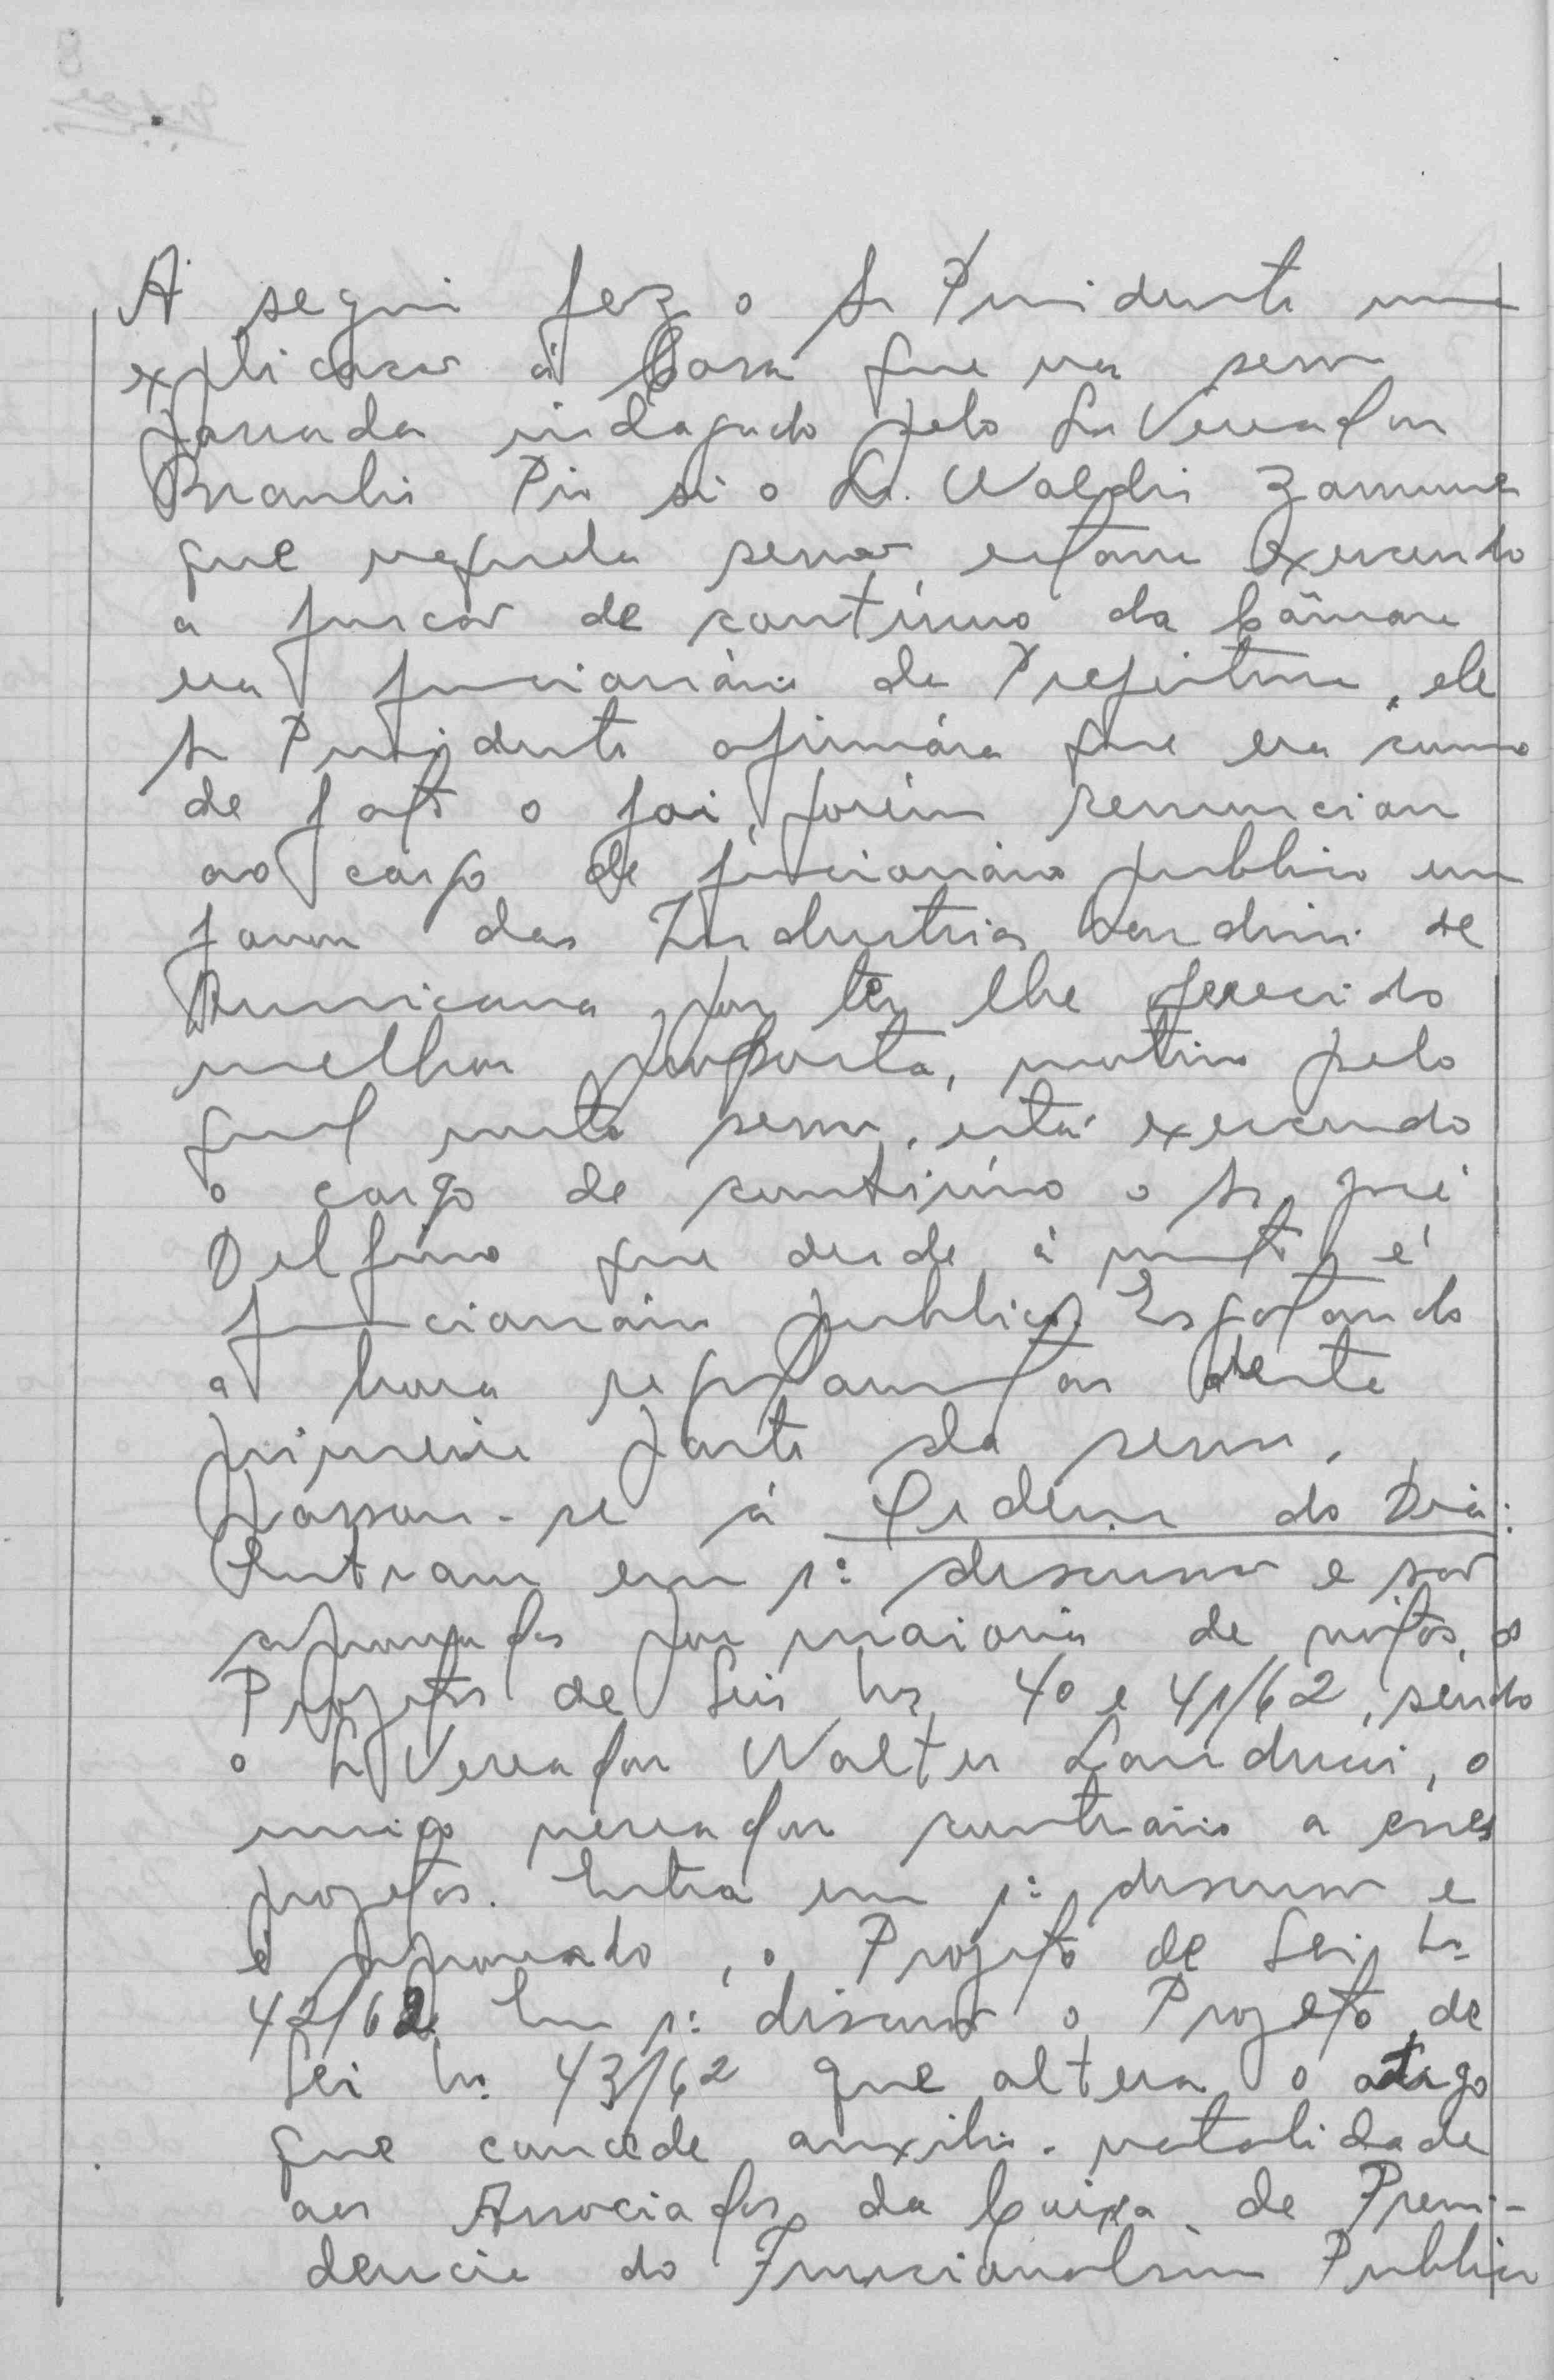 A seguir fez o Sr Presidente uma
explicação á Casa que na sessão
passada indagado pelo Sr Vereador
Braulio Pio si o Sr. Waldir
que naquela sessão, estava exercendo
a função de contínuo da Câmara
era funcionário da Prefeitura, ele
Sr Presidente afirmára que era como
de fato o foi, porém renunciou
ao cargo de funcionário publico em
favor das Industrias Nardini de
Americana por ter lhe oferecido
melhor proposta, motivo pelo
qual nesta sessão, está exercendo
o cargo de contínuo o Sr José
Delfino que desde á muito é
funcionário publico. Esgotando
a hora regulamentar deste
primeira parte da sessão,
Passou-se á Ordem do Dia:
Entram em 1ª discussão e são
aprovados por maioria de votos, os
Projetos de Leis nºs 40 e 41/62, sendo
o Sr Vereador Walter Landucci, o
unico vereador contrário a esses
projetos. Entra em 1ª discussão e
é aprovado, o Projeto de Lei nº
42/62. Em 1ª discussão o Projeto de
Lei nº 43/62 que altera o artigo
que concede auxilio-natalidade
aos Associados da Caixa de Previ-
dencia do Funcionalismo Publico